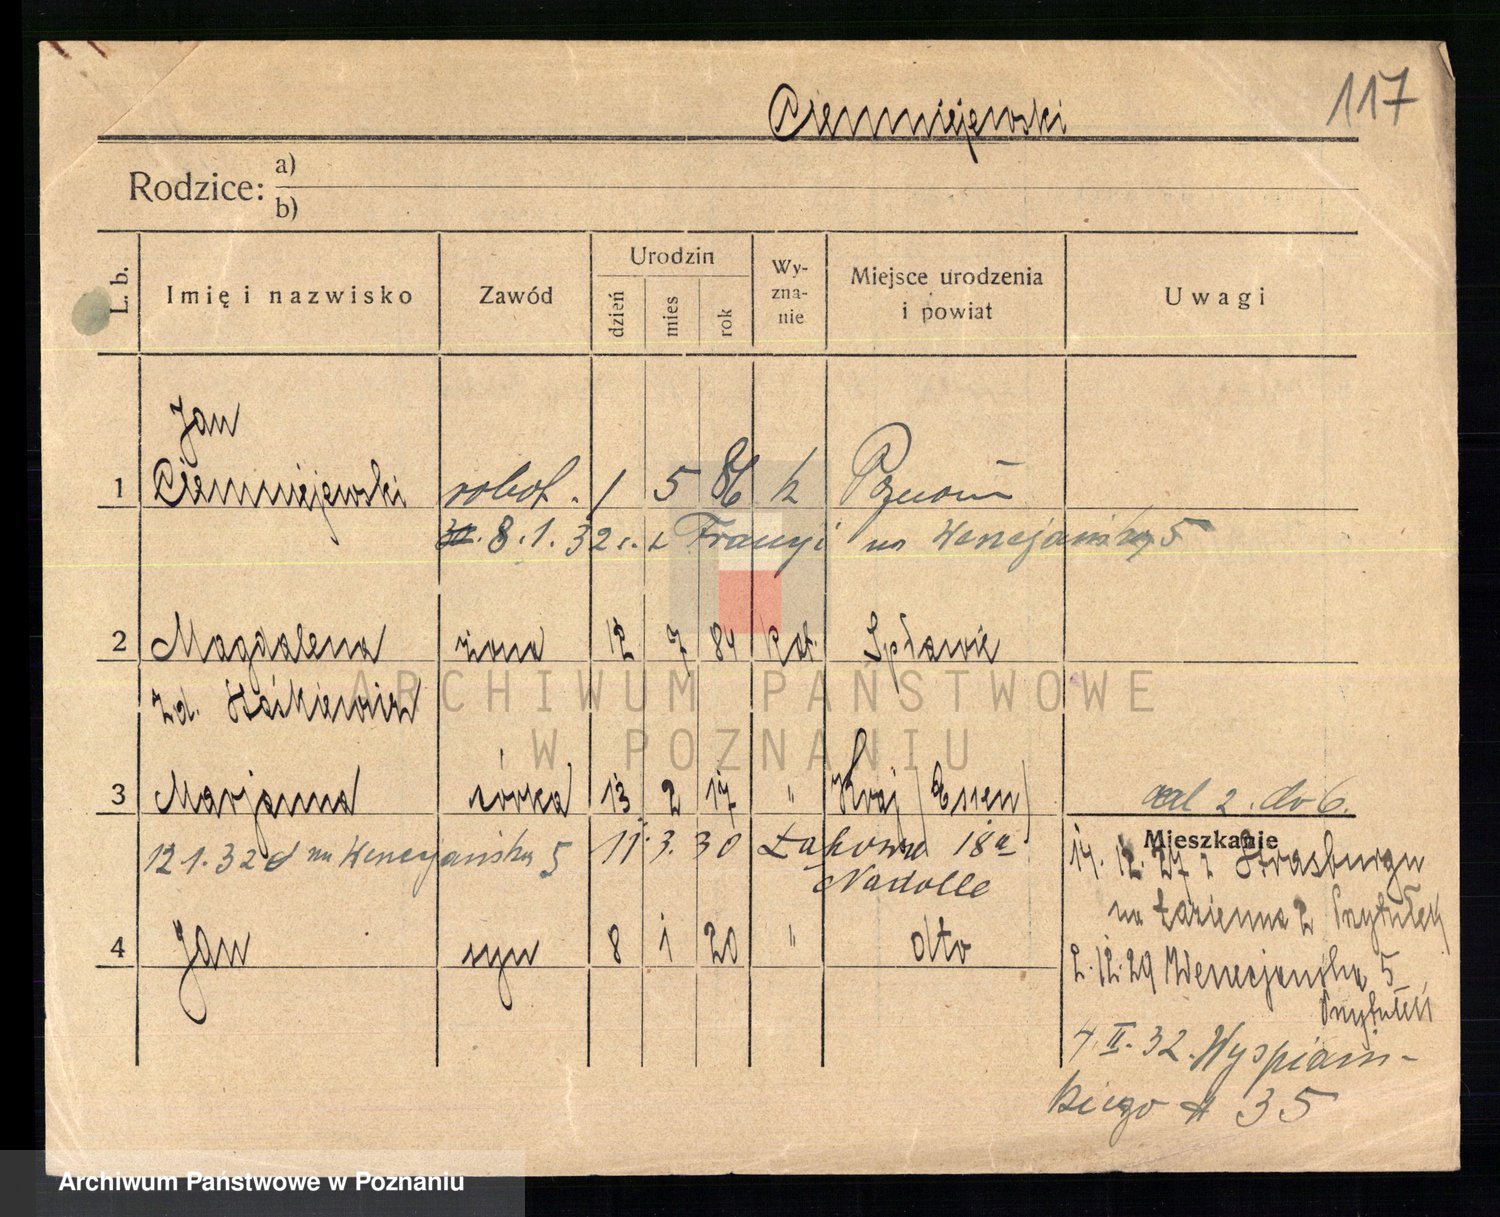 117
Ciemniejewski
Rodzice: a)
b)
L. b. Imię i nazwisko Zawód Urodzin dzień mies rok Wy-zna-nie Miejsce urodzenia i powiat Uwagi
Jan
1 Ciemniejewski robot. 1 5 86 k Poznań
8.1.32 z Francyi na Wenecjańską 5
2 Magdalena żona 12 7 84 kat. Spławie
zd.
3 Marjanna córka 13 2 17 " Kraj (Essen) ad 2. do 6.
Mieszkanie
12 1. 32 na Wenecjańską 5 11. 3. 30 Łąkowa 18a
Nadolle
17. 12. 27 z Strasburgu
na Łazienna 2 Przytułek
4 Jan syn 8 1 20 " dto
2. 12. 29 Wenecjańska 5
Przytułek
4. II. 32. Wyspiań-
skiego 35
ARCHIWUM PAŃSTWOWE
W POZNANIU
Archiwum Państwowe w Poznaniu